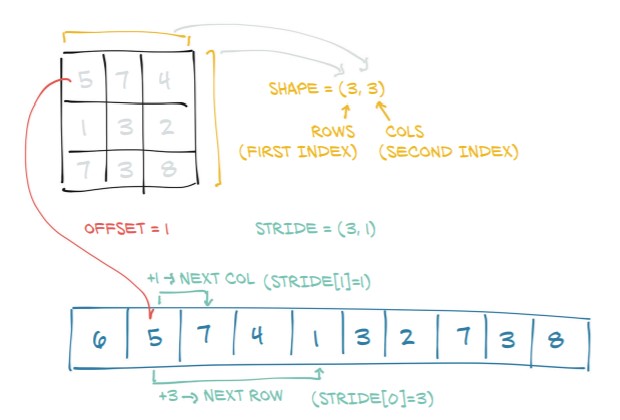 5 7 4
SHAPE = (3, 3)
1 3 2
ROWS COLS
(FIRST INDEX) (SECOND INDEX)
7 3 8
OFFSET = 1 STRIDE = (3, 1)
+1 → NEXT COL (STRIDE[1]=1)
6 5 7 4 1 3 2 7 3 8
+3 → NEXT ROW (STRIDE[0]=3)